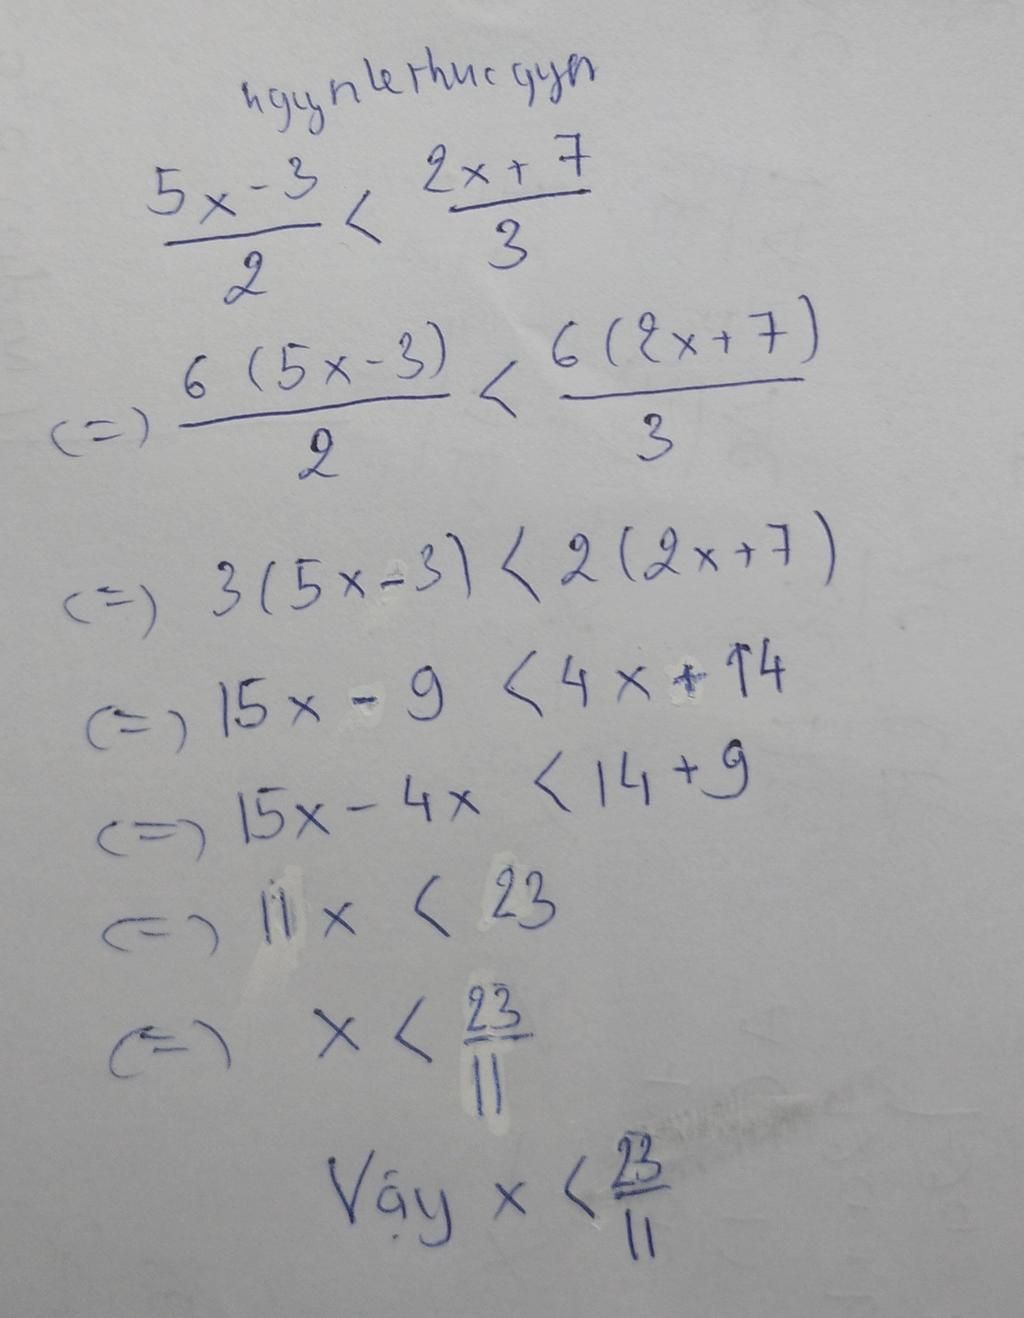 nguynlethucquyn
5x - 3 / 2 < 2x + 7 / 3
(=) 6 (5x - 3) / 2 < 6 (2x + 7) / 3
(=) 3(5x - 3) < 2(2x + 7)
(=) 15x - 9 < 4x + 14
(=) 15x - 4x < 14 + 9
(=) 11x < 23
(=) x < 23 / 11
Vậy x < 23 / 11